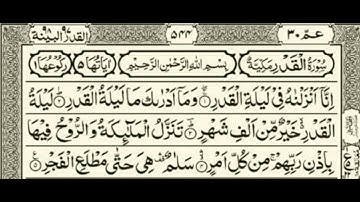 القدر ٩٧ البينة ٩٨ ٥٤٤ عم ٣٠
سُوْرَةُ الْقَدْرِ مَكِّيَّةٌ بِسْمِ اللهِ الرَّحْمٰنِ الرَّحِيْمِ اٰيَاتُهَا ٥ رُكُوْعُهَا ١
اِنَّاۤ اَنْزَلْنٰهُ فِيْ لَيْلَةِ الْقَدْرِ ۝١ وَمَاۤ اَدْرٰىكَ مَا لَيْلَةُ الْقَدْرِ ۝٢ لَيْلَةُ
الْقَدْرِ خَيْرٌ مِّنْ اَلْفِ شَهْرٍ ۝٣ تَنَزَّلُ الْمَلٰٓئِكَةُ وَالرُّوْحُ فِيْهَا
بِاِذْنِ رَبِّهِمْ مِنْ كُلِّ اَمْرٍ ۝٤ سَلٰمٌ هِيَ حَتّٰى مَطْلَعِ الْفَجْرِ ۝٥